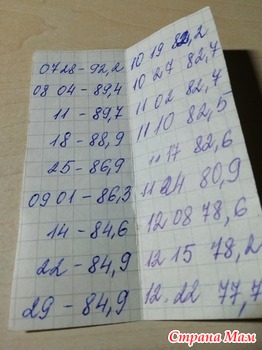 0728 - 92,2
08 04 - 89,4
11 - 89,7
18 - 88,9
25 - 86,9
09 01 - 86,3
14 - 84,6
22 - 84,9
29 - 84,9
10 19 82,2
10 27 82,7
11 02 82,7
11 10 82,5
11 17 82,6
11 24 80,9
12 08 78,6
12 15 78,2
12.22 77,7
Страна Мам